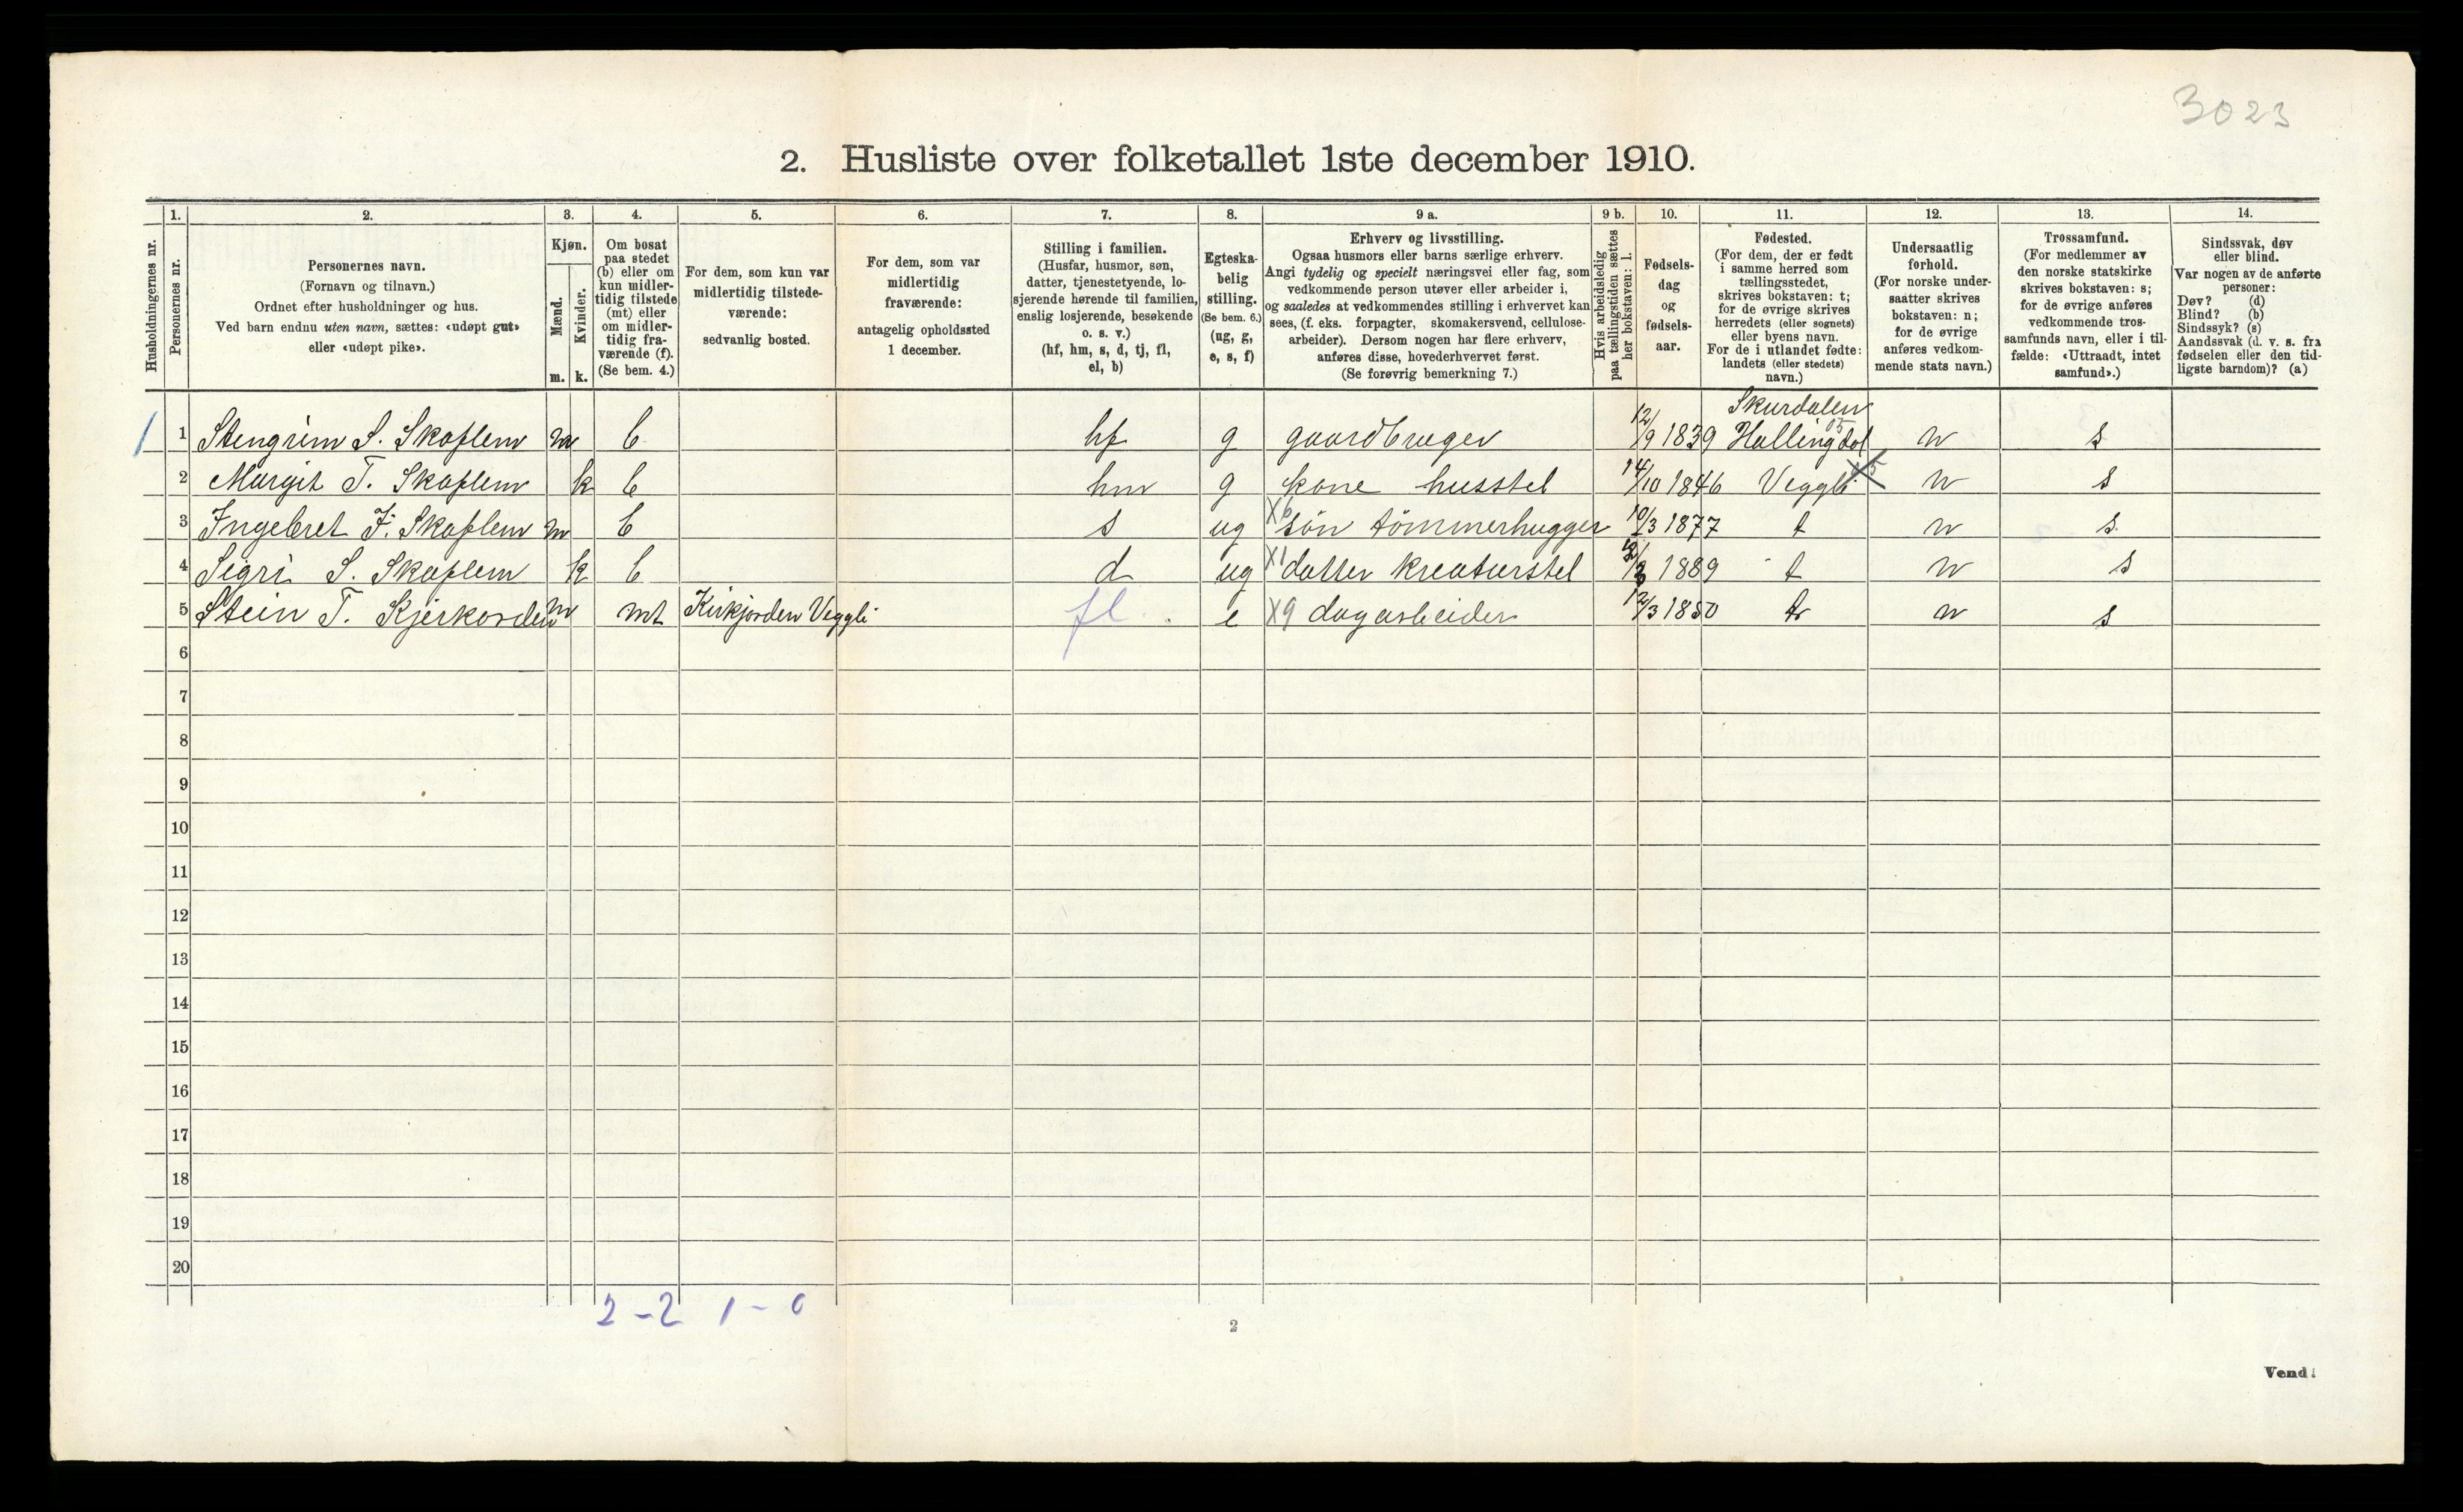 3023
2. Husliste over folketallet 1ste december 1910.
1. 2. 3. 4. 5. 6. 7. 8. 9 a. 9 b. 10. 11. 12. 13. 14.
Husholdningernes nr.
Personernes nr.
Personernes navn.
(Fornavn og tilnavn.)
Ordnet efter husholdninger og hus.
Ved barn endnu uten navn, sættes: «udøpt gut»
eller «udøpt pike».
Kjøn.
Mænd.
Kvinder.
m. k.
Om bosat
paa stedet
(b) eller om
kun midler-
tidig tilstede
(mt) eller
om midler-
tidig fra-
værende (f).
(Se bem. 4.)
For dem, som kun var
midlertidig tilstede-
værende:
sedvanlig bosted.
For dem, som var
midlertidig
fraværende:
antagelig opholdssted
1 december.
Stilling i familien.
(Husfar, husmor, søn,
datter, tjenestetyende, lo-
sjerende hørende til familien,
enslig losjerende, besøkende
o. s. v.)
(hf, hm, s, d, tj, fl,
el, b)
Egteska-
belig
stilling.
(Se bem. 6.)
(ug, g,
e, s, f)
Erhverv og livsstilling.
Ogsaa husmors eller barns særlige erhverv.
Angi tydelig og specielt næringsvei eller fag, som
vedkommende person utøver eller arbeider i,
og saaledes at vedkommendes stilling i erhvervet kan
sees, (f. eks. forpagter, skomakersvend, cellulose-
arbeider). Dersom nogen har flere erhverv,
anføres disse, hovederhvervet først.
(Se forøvrig bemerkning 7.)
Hvis arbeidsledig
paa tællingstiden sættes
her bokstaven: l.
Fødsels-
dag
og
fødsels-
aar.
Fødested.
(For dem, der er født
i samme herred som
tællingsstedet,
skrives bokstaven: t;
for de øvrige skrives
herredets (eller sognets)
eller byens navn.
For de i utlandet fødte:
landets (eller stedets)
navn.)
Undersaatlig
forhold.
(For norske under-
saatter skrives
bokstaven: n;
for de øvrige
anføres vedkom-
mende stats navn.)
Trossamfund.
(For medlemmer av
den norske statskirke
skrives bokstaven: s;
for de øvrige anføres
vedkommende tros-
samfunds navn, eller i til-
fælde: «Uttraadt, intet
samfund».)
Sindssvak, døv
eller blind.
Var nogen av de anførte
personer:
Døv? (d)
Blind? (b)
Sindssyk? (s)
Aandssvak (d. v. s. fra
fødselen eller den tid-
ligste barndom)? (a)
Skurdalen
1 1 Stengrim S. Skaflem m b hf g gaardbruger 12/9 1839 Hallingdal n s
2 Margit T. Skaflem k b hm g kone husstel 14/10 1846 Veggli n s
3 Ingebret F. Skaflem m b s ug X6 søn tömmerhugger 10/3 1877 t n s
4 Sigri S. Skaflem k b d ug X1 datter kreaturstel 1889 t n s
5 Stein T. Kjerkorden m mt Kirkjorden Veggli fl e X9 dagarbeider 12/3 1850 n s
6
7
8
9
10
11
12
13
14
15
16
17
18
19
20
2-2 1-0
2
Vend!